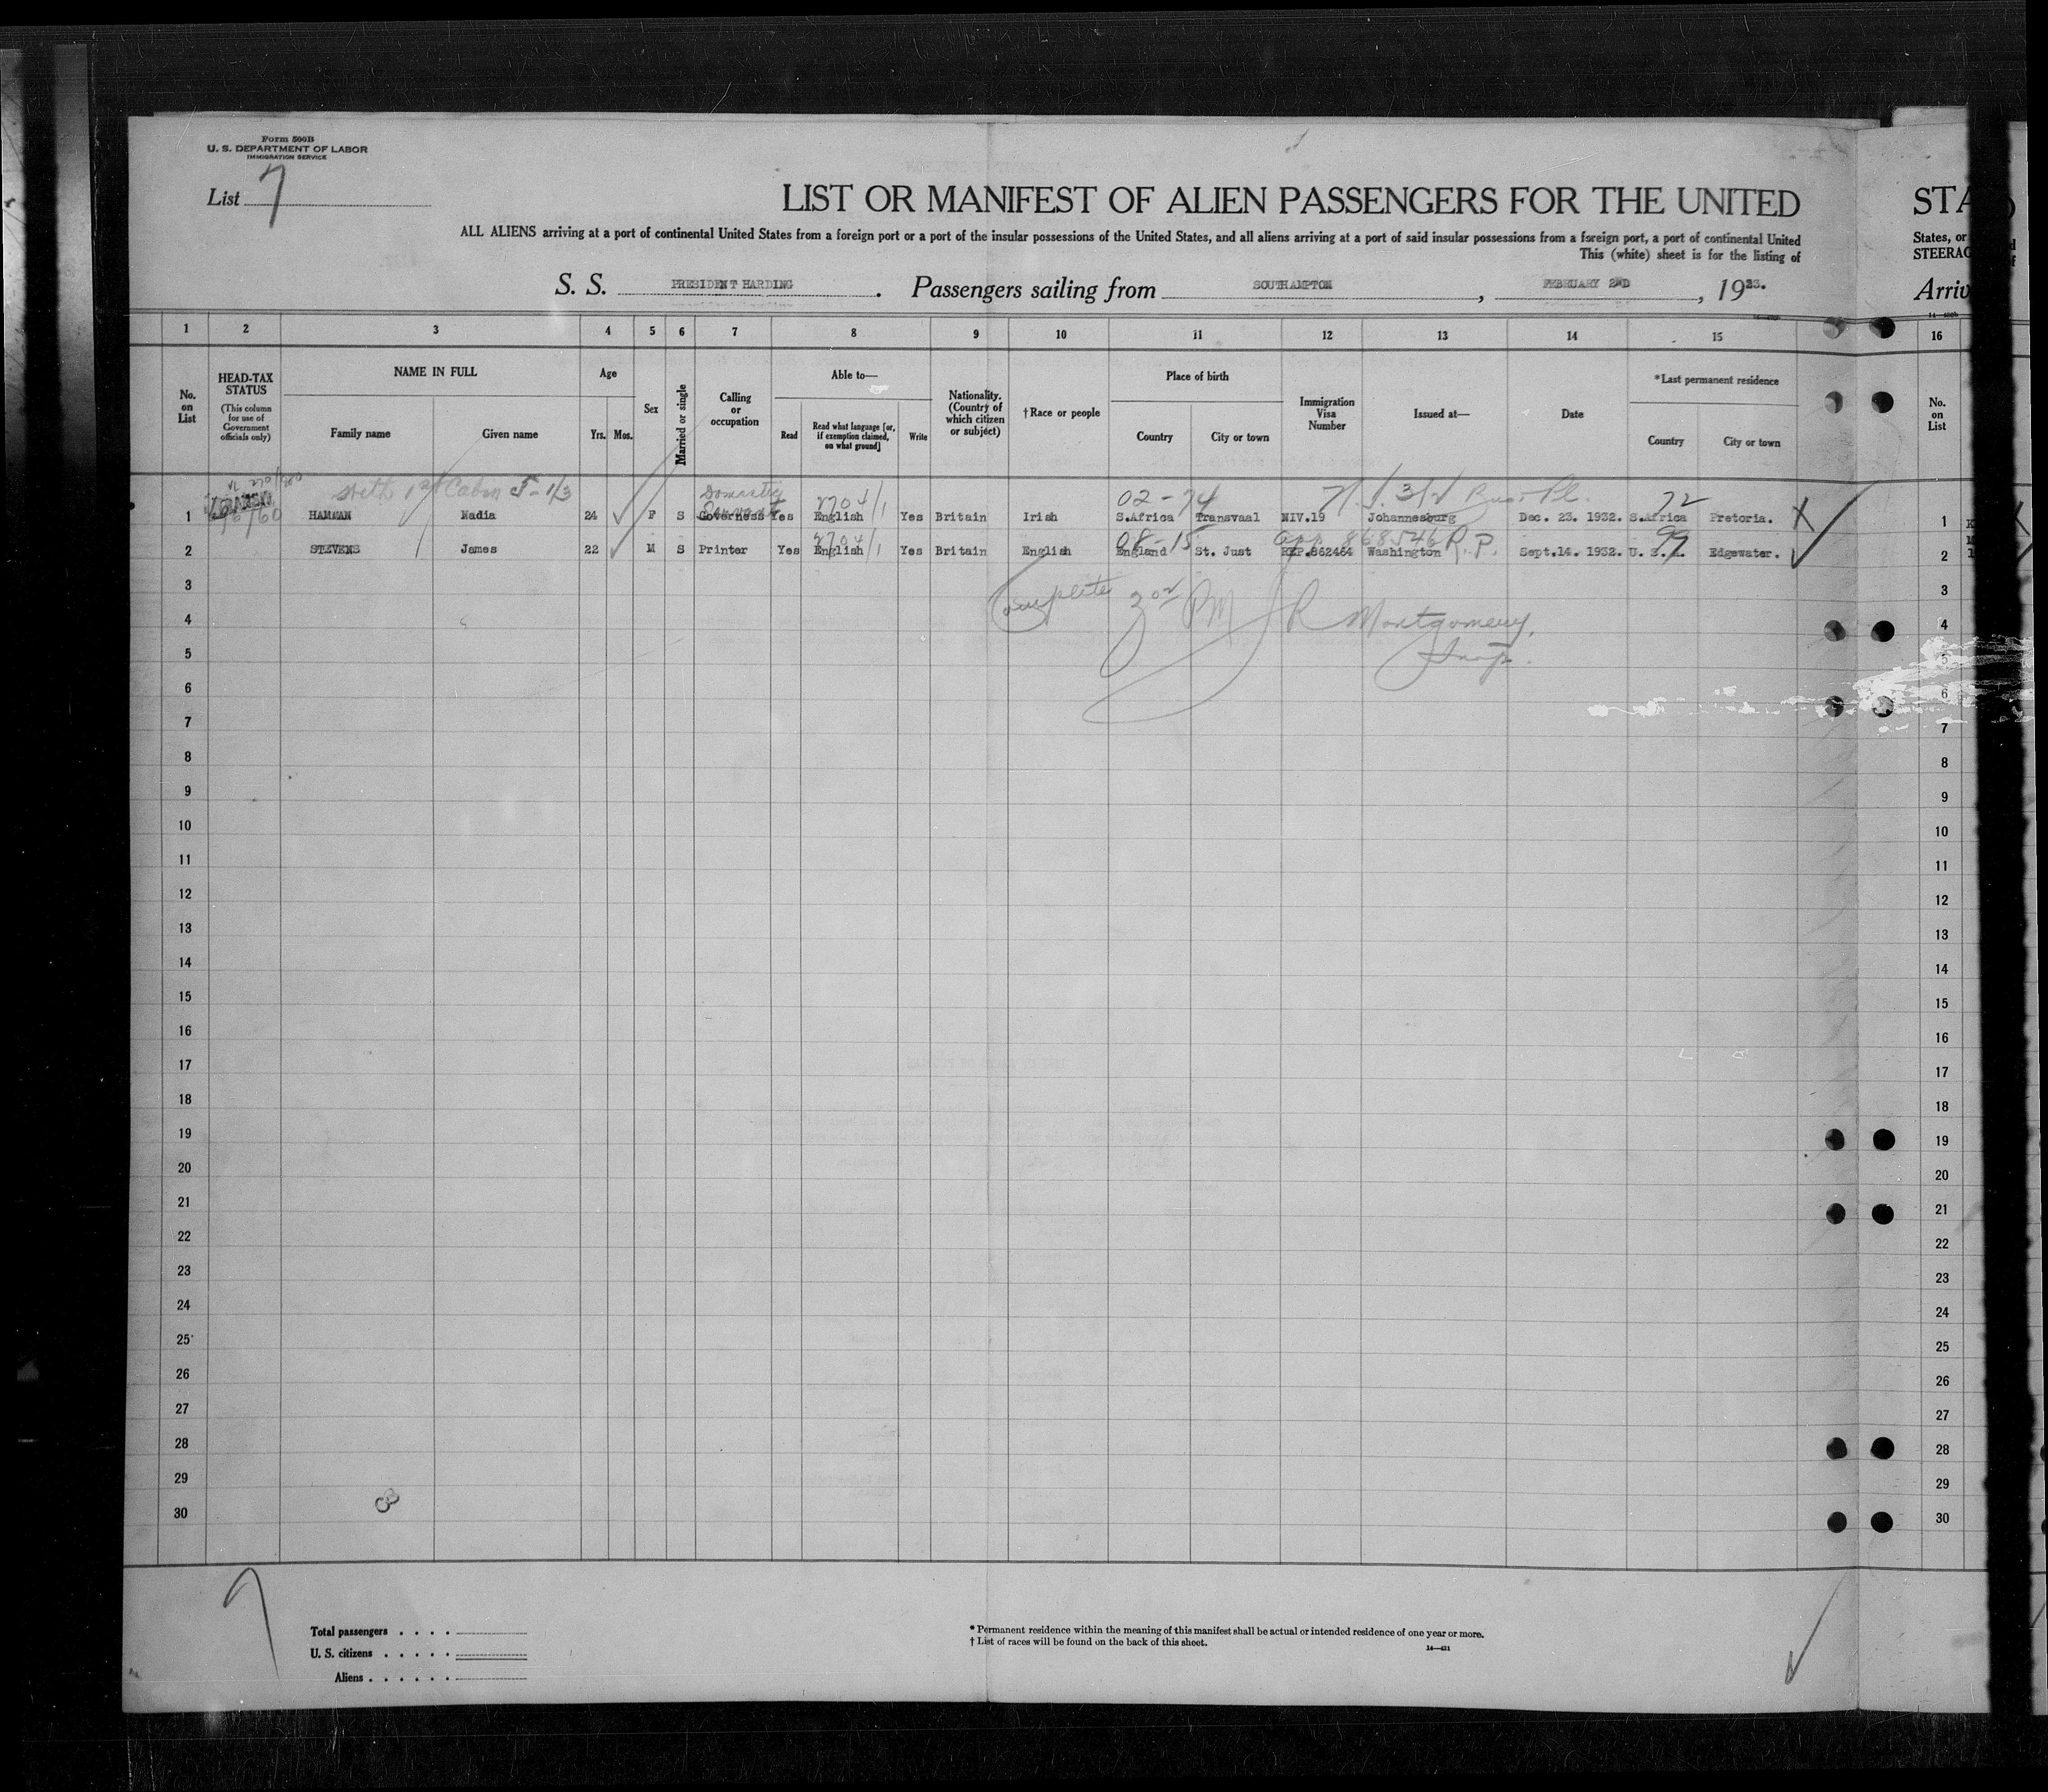 Form 500B
U. S. DEPARTMENT OF LABOR
IMMIGRATION SERVICE
List 7
LIST OR MANIFEST OF ALIEN PASSENGERS FOR THE UNITED
STA
ALL ALIENS arriving at a port of continental United States from a foreign port or a port of the insular possessions of the United States, and all aliens arriving at a port of said insular possessions from a foreign port, a port of continental United
States, or
This (white) sheet is for the listing of
STEERAG
S. S. PRESIDENT HARDING . Passengers sailing from SOUTHAMPTON , FEBRUARY 2ND , 1933.
Arriv
1 2 3 4 5 6 7 8 9 10 11 12 13 14 15 16
No. on List
HEAD-TAX STATUS
(This column for use of Government officials only)
NAME IN FULL
Family name
Given name
Age
Yrs. Mos.
Sex
Married or single
Calling or occupation
Able to—
Read
Read what language [or, if exemption claimed, on what ground]
Write
Nationality. (Country of which citizen or subject)
†Race or people
Place of birth
Country
City or town
Immigration Visa Number
Issued at—
Date
*Last permanent residence
Country
City or town
No. on List
with 1st Cabin 5-1/3 Domestic 2704/1 02-74 72
1 HAMMAN Nadia 24 F S Governess Yes English Yes Britain Irish S.Africa Transvaal NIV.19 Johannesburg Dec. 23. 1932. S.Africa Pretoria. X 1
2704/1 08-15 app. 868546 R.P. 99
2 STEVENS James 22 M S Printer Yes English Yes Britain English England St. Just REP.862464 Washington Sept.14. 1932. U. S. A. Edgewater. 2
3 Complete PM J R Montgomery, 3
4 Insp. 4
5 5
6 6
7 7
8 8
9 9
10 10
11 11
12 12
13 13
14 14
15 15
16 16
17 17
18 18
19 19
20 20
21 21
22 22
23 23
24 24
25 25
26 26
27 27
28 28
29 29
30 30
7
Total passengers . . . .
U. S. citizens . . . . .
Aliens . . . . . .
* Permanent residence within the meaning of this manifest shall be actual or intended residence of one year or more.
† List of races will be found on the back of this sheet.
14—431